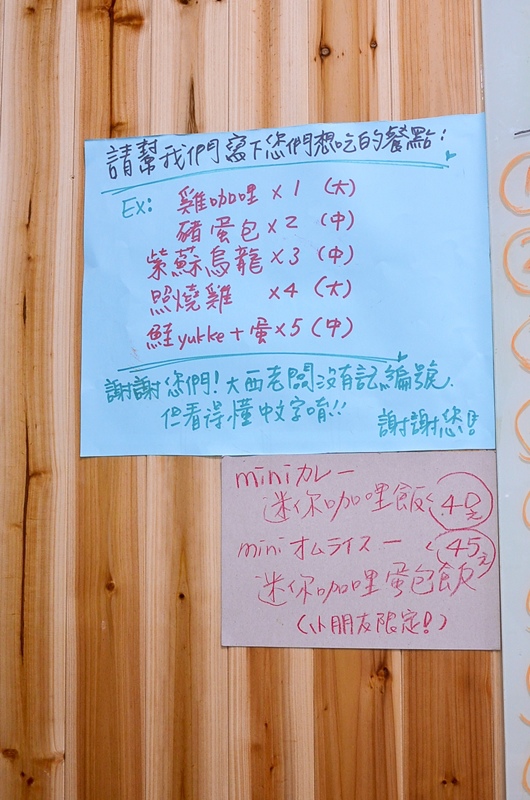 請幫我們寫下您們想吃的餐點:
EX: 雞咖哩 x 1 (大)
豬蛋包 x 2 (中)
紫蘇烏龍 x 3 (中)
照燒雞 x 4 (大)
鮭yukke+蛋 x 5 (中)
謝謝您們! 大西老闆沒有記編號.
但看得懂中文字唷!!
謝謝您!!
miniカレー
迷你咖哩飯 40元
miniオムライスー 45元
迷你咖哩蛋包飯
(小朋友限定!)